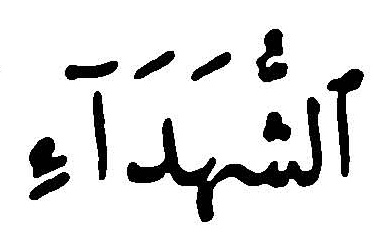 ٱلشُّهَدَآءِ